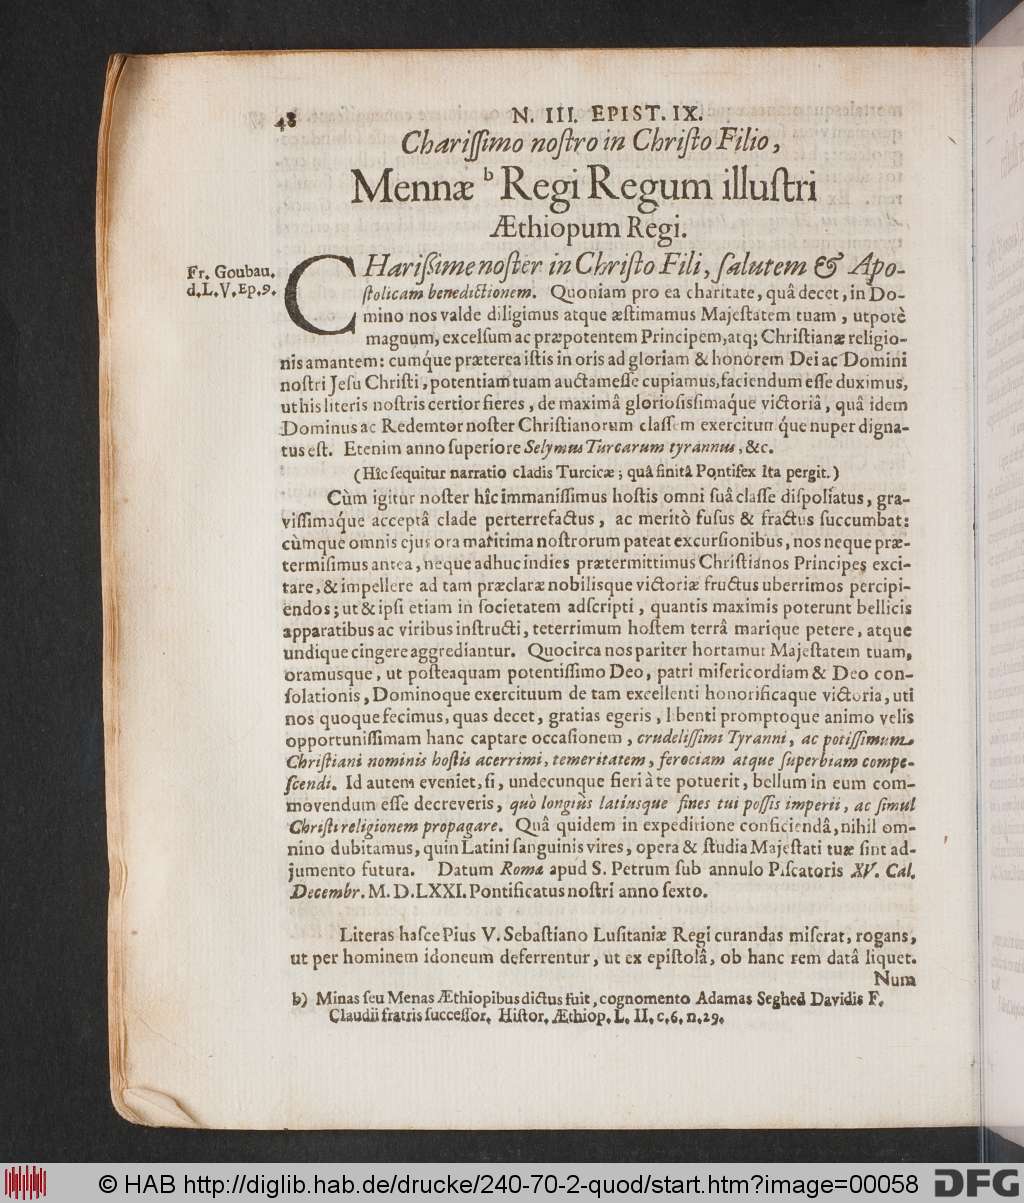 48
N. III. EPIST. IX.
Chariſſimo noſtro in Chriſto Filio,
Mennæ ᵇ Regi Regum illuſtri
Æthiopum Regi.
Fr. Goubau.
d.L.V.Ep.9.
CHarißime noſter in Chriſto Fili, ſalutem & Apo-
ſtolicam benedictionem. Quoniam pro ea charitate, quâ decet, in Do-
mino nos valde diligimus atque æſtimamus Majeſtatem tuam, utpotè
magnum, excelſum ac præpotentem Principem, atq; Chriſtianæ religio-
nis amantem: cumque præterea iſtis in oris ad gloriam & honorem Dei ac Domini
noſtri Jeſu Chriſti, potentiam tuam auctam eſſe cupiamus, faciendum eſſe duximus,
ut his literis noſtris certior fieres, de maximâ glorioſisſimaq́ue victoriâ, quâ idem
Dominus ac Redemtor noſter Chriſtianorum claſſem exercitum q́ue nuper digna-
tus eſt. Etenim anno ſuperiore Selymus Turcarum tyrannus, &c.
(Hîc ſequitur narratio cladis Turcicæ; quâ finitâ Pontifex ita pergit.)
Cùm igitur noſter hîc immaniſſimus hoſtis omni ſuâ claſſe diſpoliatus, gra-
viſſimaq́ue acceptâ clade perterrefactus, ac meritò fuſus & fractus ſuccumbat:
cùmque omnis ejus ora maritima noſtrorum pateat excurſionibus, nos neque præ-
termiſimus antea, neque adhuc indies prætermittimus Chriſtianos Principes exci-
tare, & impellere ad tam præclaræ nobilisque victoriæ fructus uberrimos percipi-
endos; ut & ipſi etiam in ſocietatem adſcripti, quantis maximis poterunt bellicis
apparatibus ac viribus inſtructi, teterrimum hoſtem terrâ marique petere, atque
undique cingere aggrediantur. Quocirca nos pariter hortamur Majeſtatem tuam,
oramusque, ut poſteaquam potentiſſimo Deo, patri miſericordiam & Deo con-
ſolationis, Dominoque exercituum de tam excellenti honorificaque victoria, uti
nos quoque fecimus, quas decet, gratias egeris, libenti promptoque animo velis
opportuniſſimam hanc captare occaſionem, crudeliſſimi Tyranni, ac potiſſimum
Chriſtiani nominis hoſtis acerrimi, temeritatem, ferociam atque ſuperbiam compe-
ſcendi. Id autem eveniet, ſi, undecunque fieri à te potuerit, bellum in eum com-
movendum eſſe decreveris, quò longiùs latiusque fines tui poſſis imperii, ac ſimul
Chriſti religionem propagare. Quâ quidem in expeditione conficiendâ, nihil om-
nino dubitamus, quin Latini ſanguinis vires, opera & ſtudia Majeſtati tuæ ſint ad-
jumento futura. Datum Romæ apud S. Petrum ſub annulo Piſcatoris XV. Cal.
Decembr. M. D. LXXI. Pontificatus noſtri anno ſexto.
Literas haſce Pius V. Sebaſtiano Luſitaniæ Regi curandas miſerat, rogans,
ut per hominem idoneum deferrentur, ut ex epiſtolâ, ob hanc rem datâ liquet.
Num
b) Minas ſeu Menas Æthiopibus dictus fuit, cognomento Adamas Seghed Davidis F.
Claudii fratris ſucceſſor. Hiſtor. Æthiop. L. II. c. 6. n. 29.
© HAB http://diglib.hab.de/drucke/240-70-2-quod/start.htm?image=00058
DFG